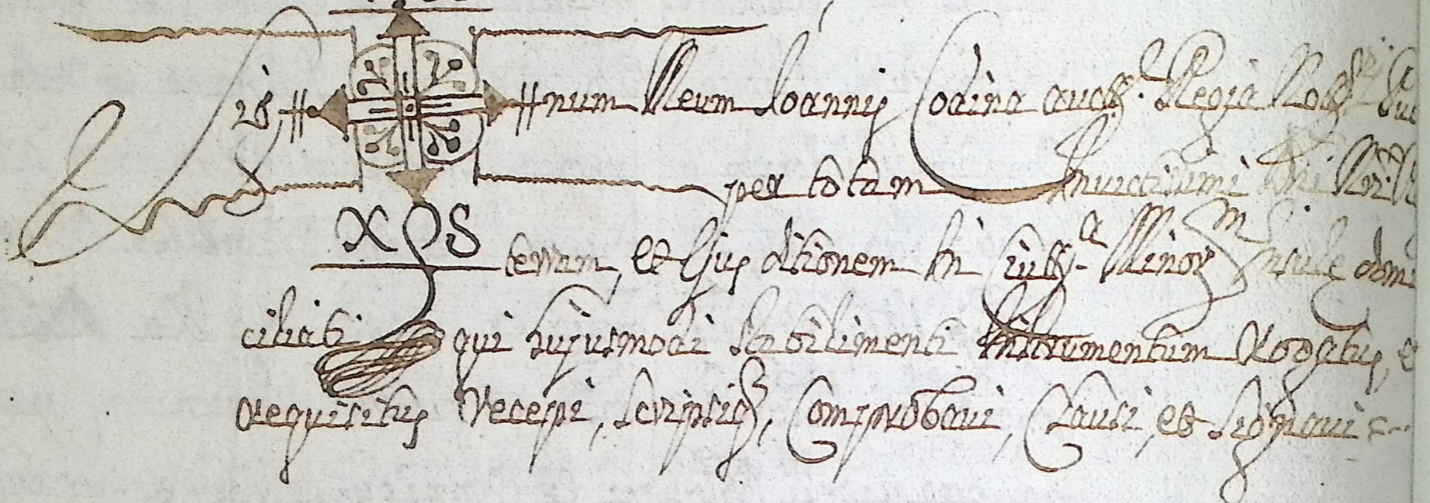 Sig#num Meum Joannis Codina auctte. Regia Notrij Pu
per totam Invictissimi Dni Nri. R
XPS terram, et Ejus ditionem In Civitte. Minoris Insulę domi
ciliati qui hujusmodi Stabilimenti Instrumentum Rogatus, e
requisitus Recepi, scripsiq, Comprobavi, Clausi, et Signavi